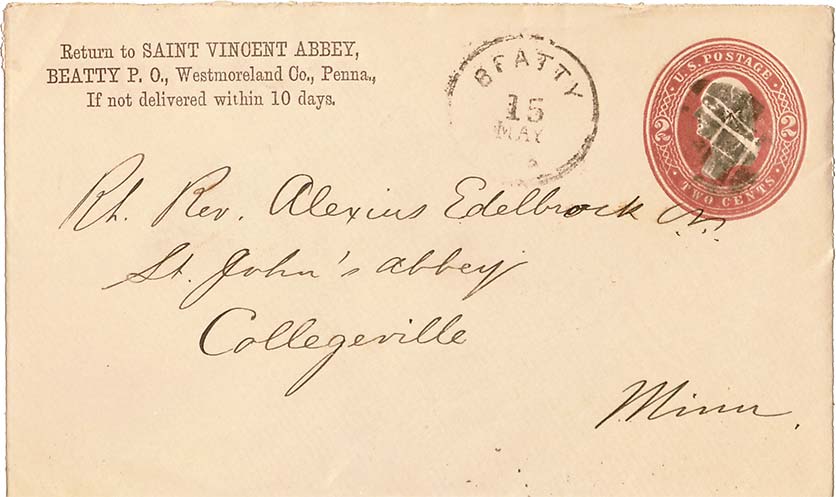 Return to SAINT VINCENT ABBEY,
BEATTY P. O., Westmoreland Co., Penna.,
If not delivered within 10 days.
BEATTY
15
MAY
U.S. POSTAGE
2 2
TWO CENTS
Rt. Rev. Alexius Edelbrock
St. John's abbey
Collegeville
Minn.